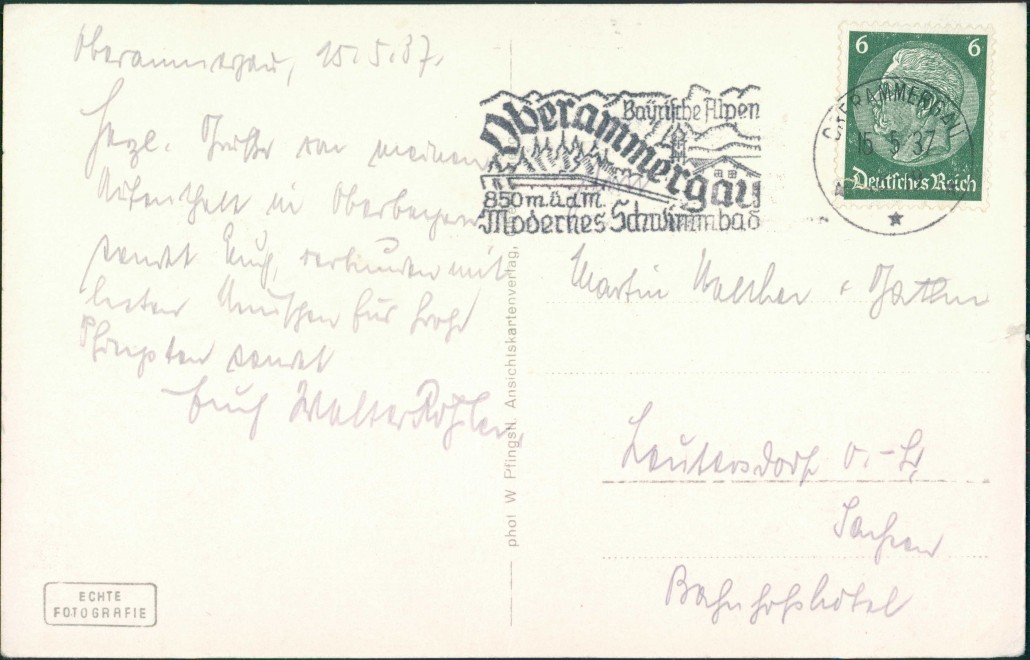 Oberammergau, 15.5.37.
Herzl. Grüße von meinem
Aufenthalt in Oberbayern
sendet Euch, verbunden mit
besten Wünschen für frohe
Pfingsten sendet
Euch Walter
Bayrische Alpen
Oberammergau
850 m ü.d.M.
Modernes Schwimmbad
6 6
Deutsches Reich
OBERAMMERGAU
15.5.37
Martin Walther
Leutersdorf O.-L.
Sachsen
Bahnhofshotel
phot W Pfingstl. Ansichtskartenverlag,
ECHTE
FOTOGRAFIE